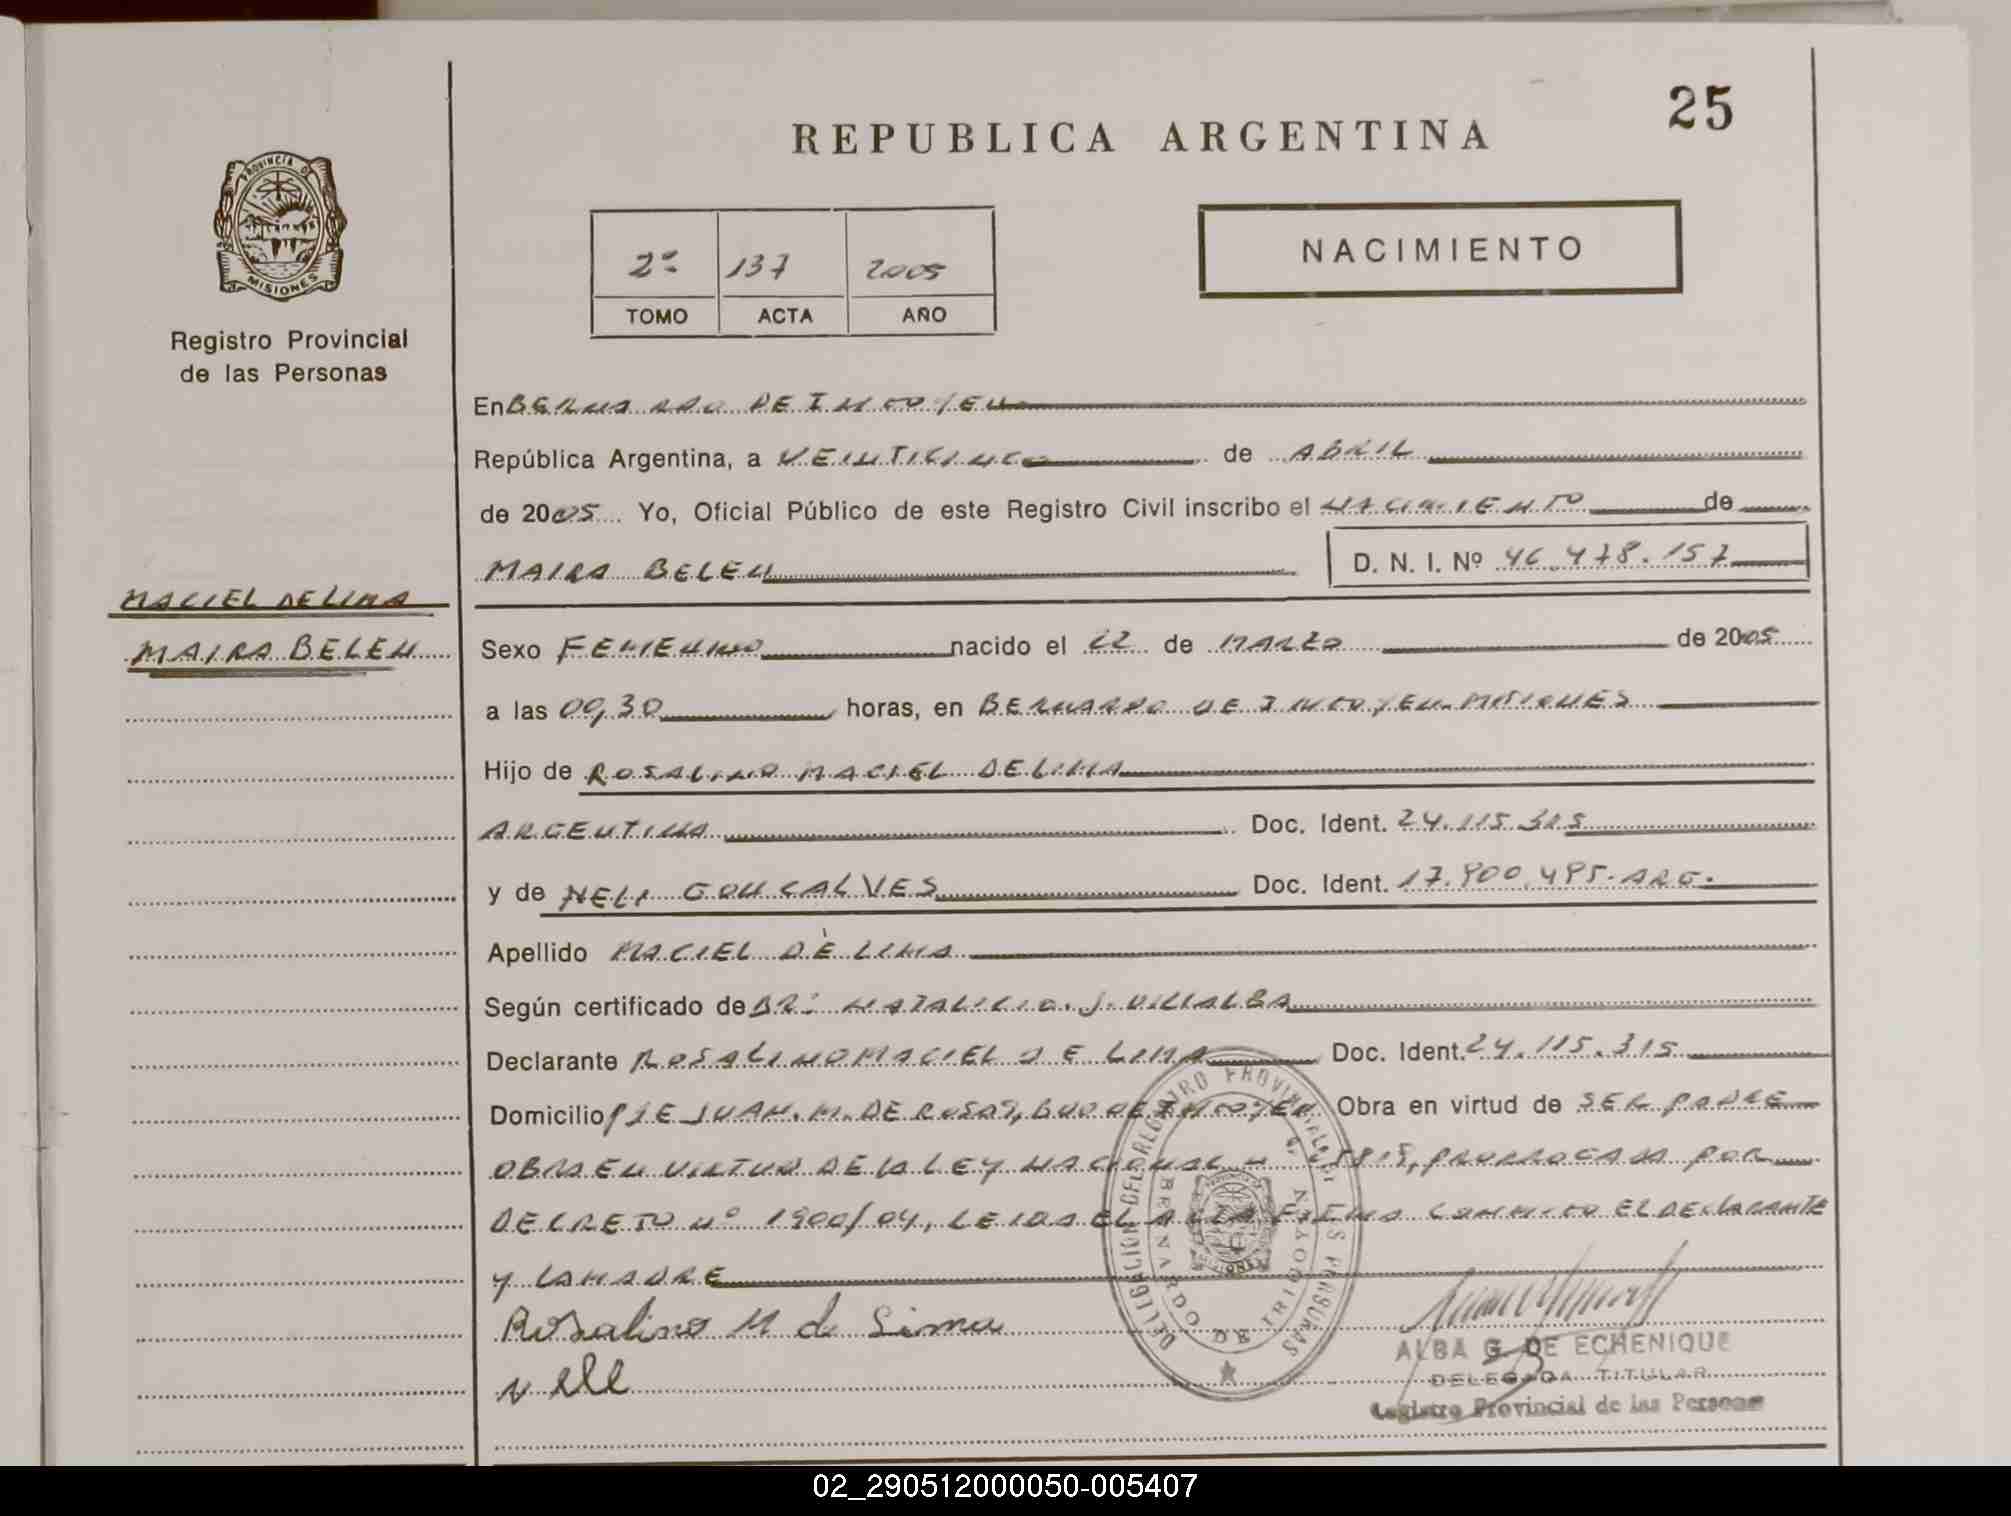 25
REPUBLICA ARGENTINA
PROVINCIA DE
MISIONES
Registro Provincial
de las Personas
2º 137 2005
TOMO ACTA AÑO
NACIMIENTO
En BERNARDO DE IRIGOYEN
República Argentina, a VEINTICINCO de ABRIL
de 2005 Yo, Oficial Público de este Registro Civil inscribo el NACIMIENTO de
MAIRA BELEN
D. N. I. Nº 46.478.157
MACIEL DE LIMA
MAIRA BELEN
Sexo FEMENINO nacido el 22 de MARZO de 2005
a las 00,30 horas, en BERNARDO DE IRIGOYEN-MISIONES
Hijo de ROSALINO MACIEL DE LIMA
ARGENTINA Doc. Ident. 24.115.315
y de NELI GONCALVES Doc. Ident. 17.900.495-ARG.
Apellido MACIEL DE LIMA
Según certificado de DR: NATALICIO. J. VILLALBA
Declarante ROSALINO MACIEL DE LIMA Doc. Ident. 24.115.315
Domicilio JUAN. M. DE ROSAS, BDO DE IRIGOYEN Obra en virtud de SER PADRE
OBRA EN VIRTUD DE LA LEY NACIONAL PRORROGADA POR
DECRETO Nº 1900/04, LEIDA EL ACTA FIRMA CONMIGO EL DECLARANTE
Y LA MADRE
Rosalino M d Lima
DELEGACION DEL REGISTRO PROVINCIAL DE LAS PERSONAS
BERNARDO DE IRIGOYEN
ALBA G. DE ECHENIQUE
DELEGADA TITULAR
Registro Provincial de las Personas
02_290512000050-005407